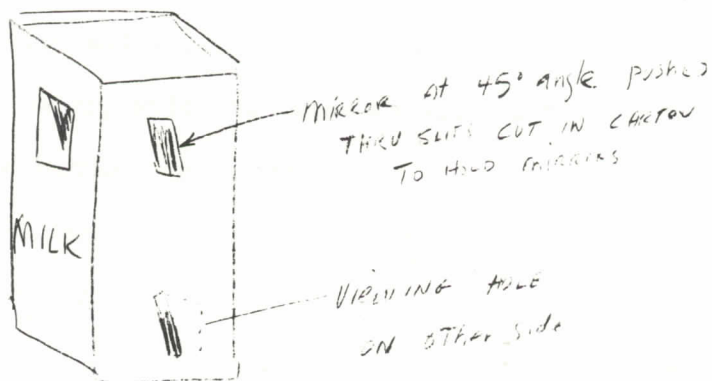 MIRROR At 45° angle pushed
THRU SLITS CUT IN CARTON
TO HOLD MIRRORS
MILK
VIEWING HOLE
ON OTHER Side